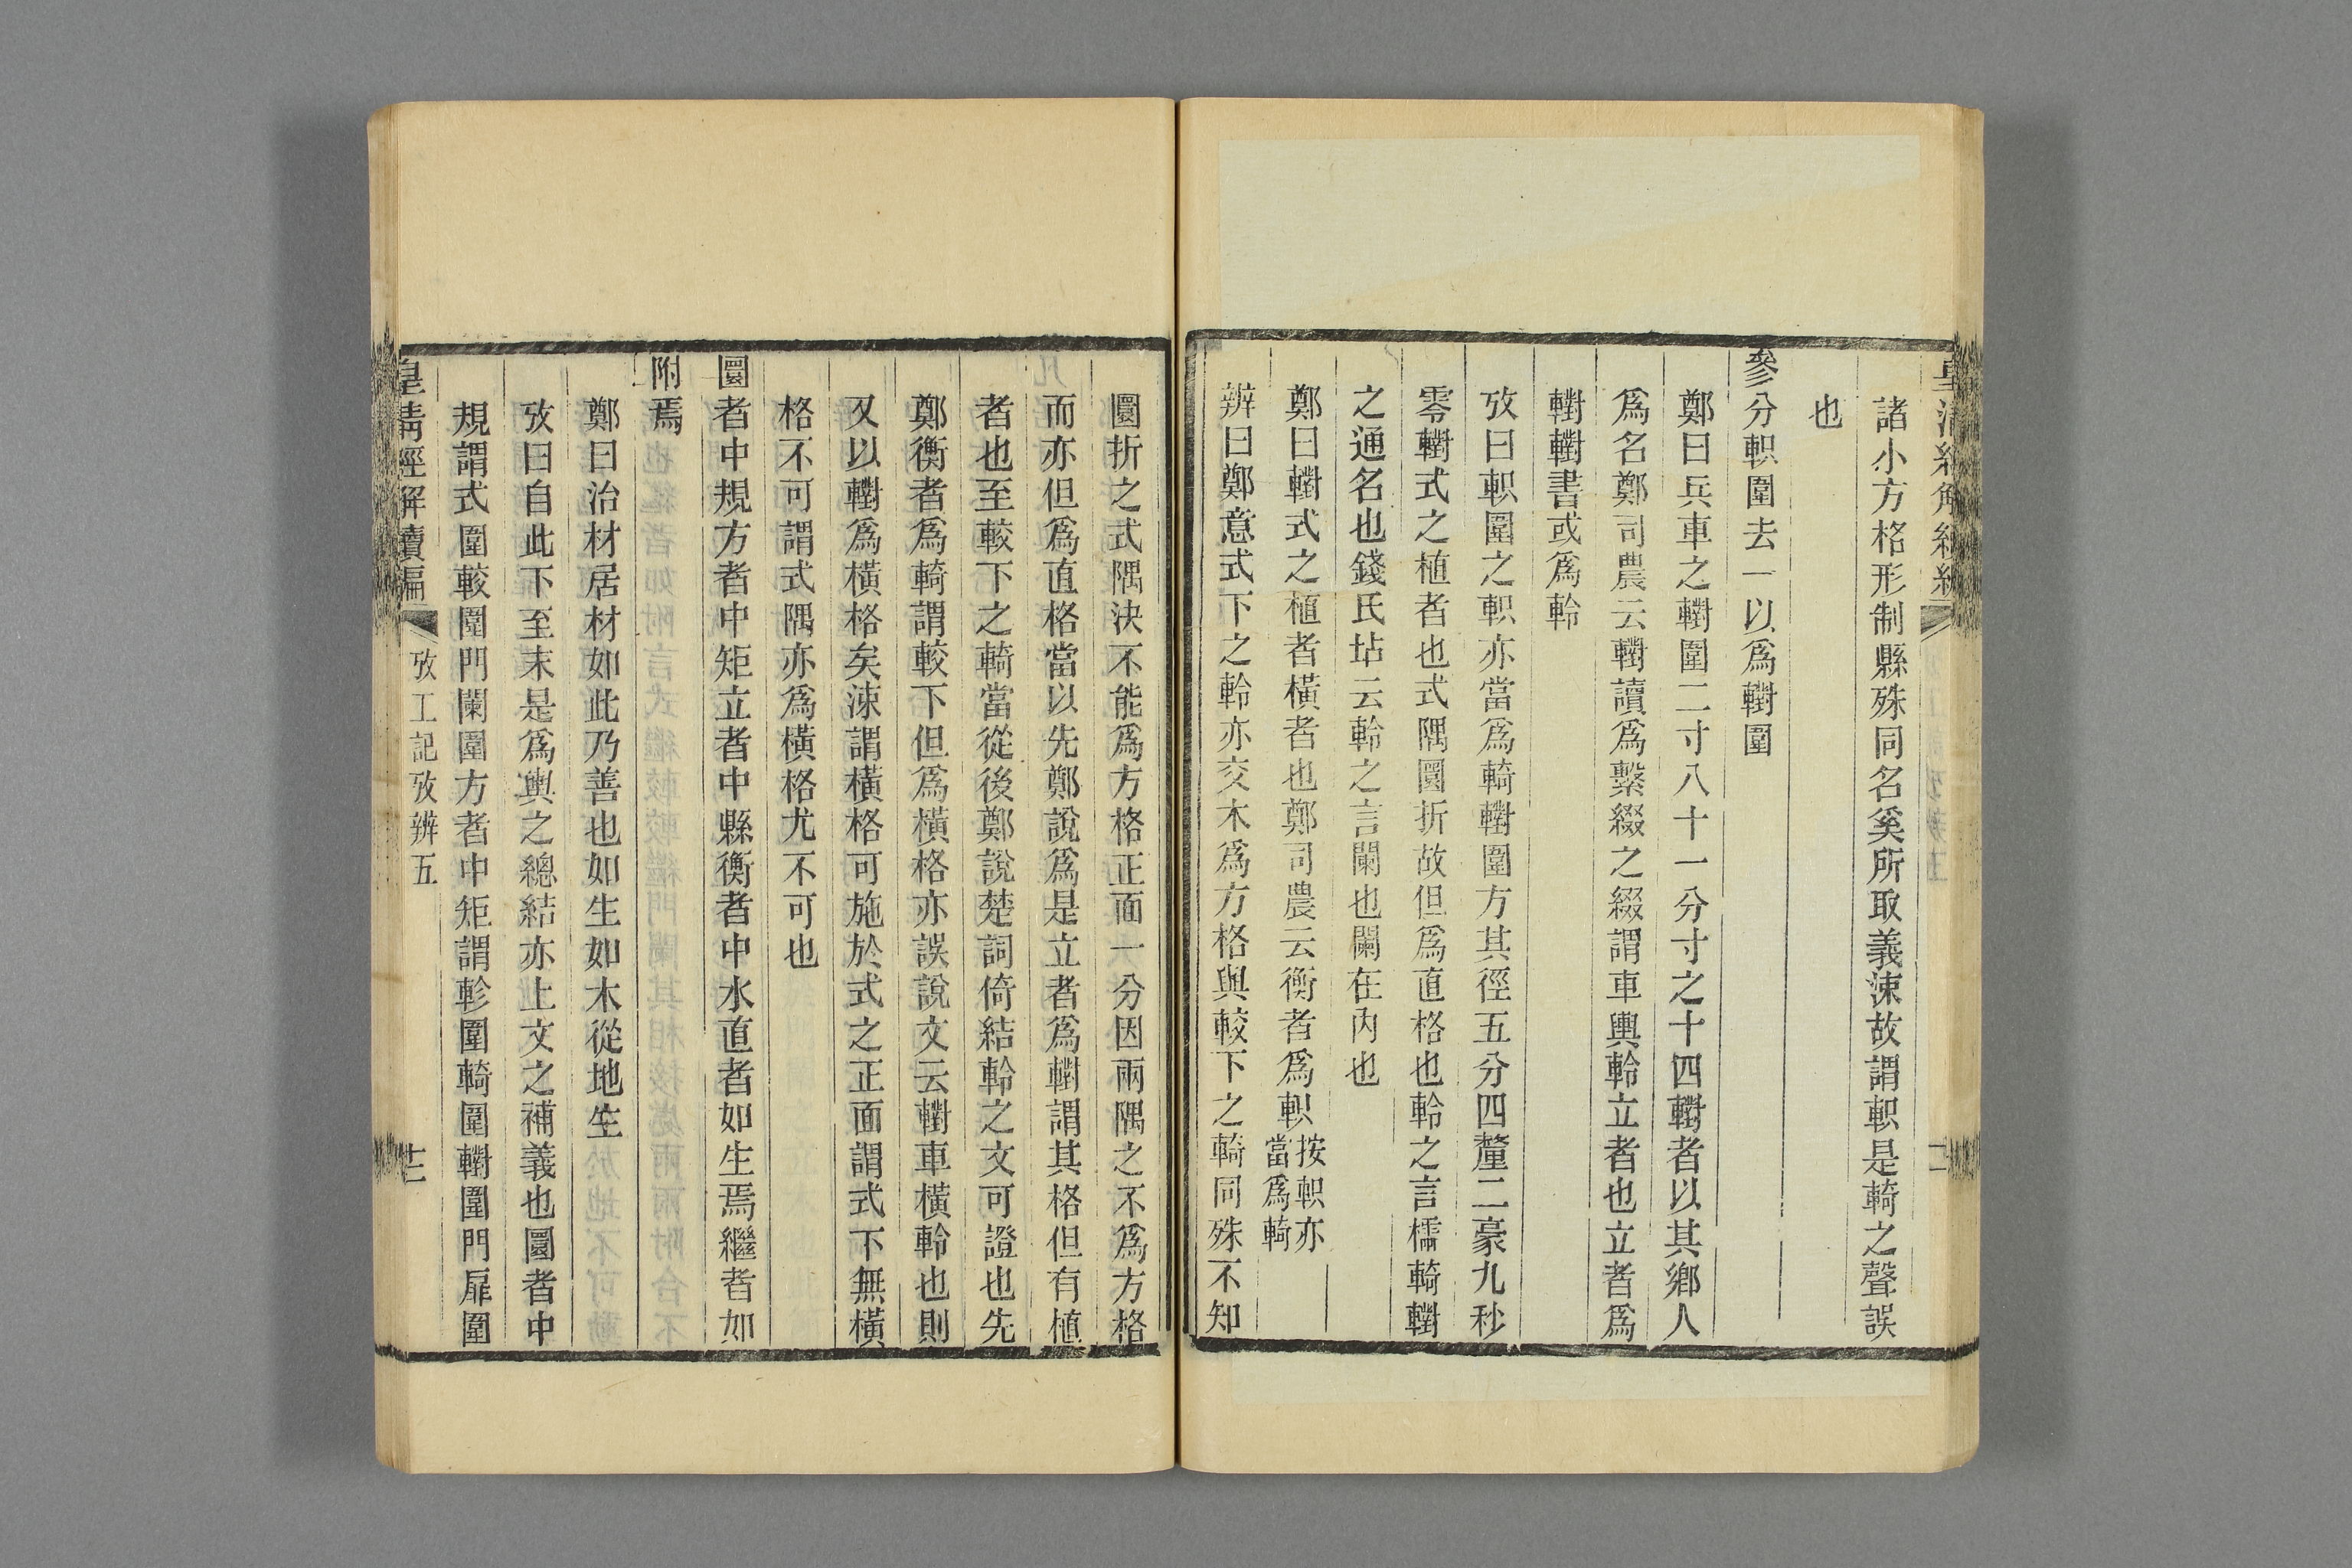 諸小方格形制縣殊同名奚所取義涑故謂軹是輢之聲誤
也
參分軹圍去一以爲轛圍
鄭曰兵車之轛圍二寸八十一分寸之十四轛者以其鄉人
爲名鄭司農云轛讀爲繫綴之綴謂車輿軨立者也立者爲
轛轛書或爲軨
攷曰軹圍之軹亦當爲輢轛圍方其徑五分四釐二豪九秒
零轛式之植者也式隅圜折故但爲直格也軨之言櫺輢轛
之通名也錢氏坫云軨之言闌也闌在內也
鄭曰轛式之植者橫者也鄭司農云衡者爲軹按軹亦當爲輢
辨曰鄭意式下之軨亦交木爲方格與較下之輢同殊不知
圜折之式隅決不能爲方格正面一分因兩隅之不爲方格
而亦但爲直格當以先鄭說爲是立者爲轛謂其格但有植
者也至較下之輢當從後鄭說楚詞倚結軨之文可證也先
鄭衡者爲輢謂較下但爲橫格亦誤說文云轛車橫軨也則
又以轛爲橫格矣涑謂橫格可施於式之正面謂式下無橫
格不可謂式隅亦爲橫格尤不可也
圜者中規方者中矩立者中縣衡者中水直者如生焉繼者如
附焉
鄭曰治材居材如此乃善也如生如木從地生
攷曰自此下至末是爲輿之總結亦上文之補義也圜者中
規謂式圍較圍門闌圍方者中矩謂軫圍輢圍轛圍門扉圍
皇淸經解續編
攷工記攷辨五